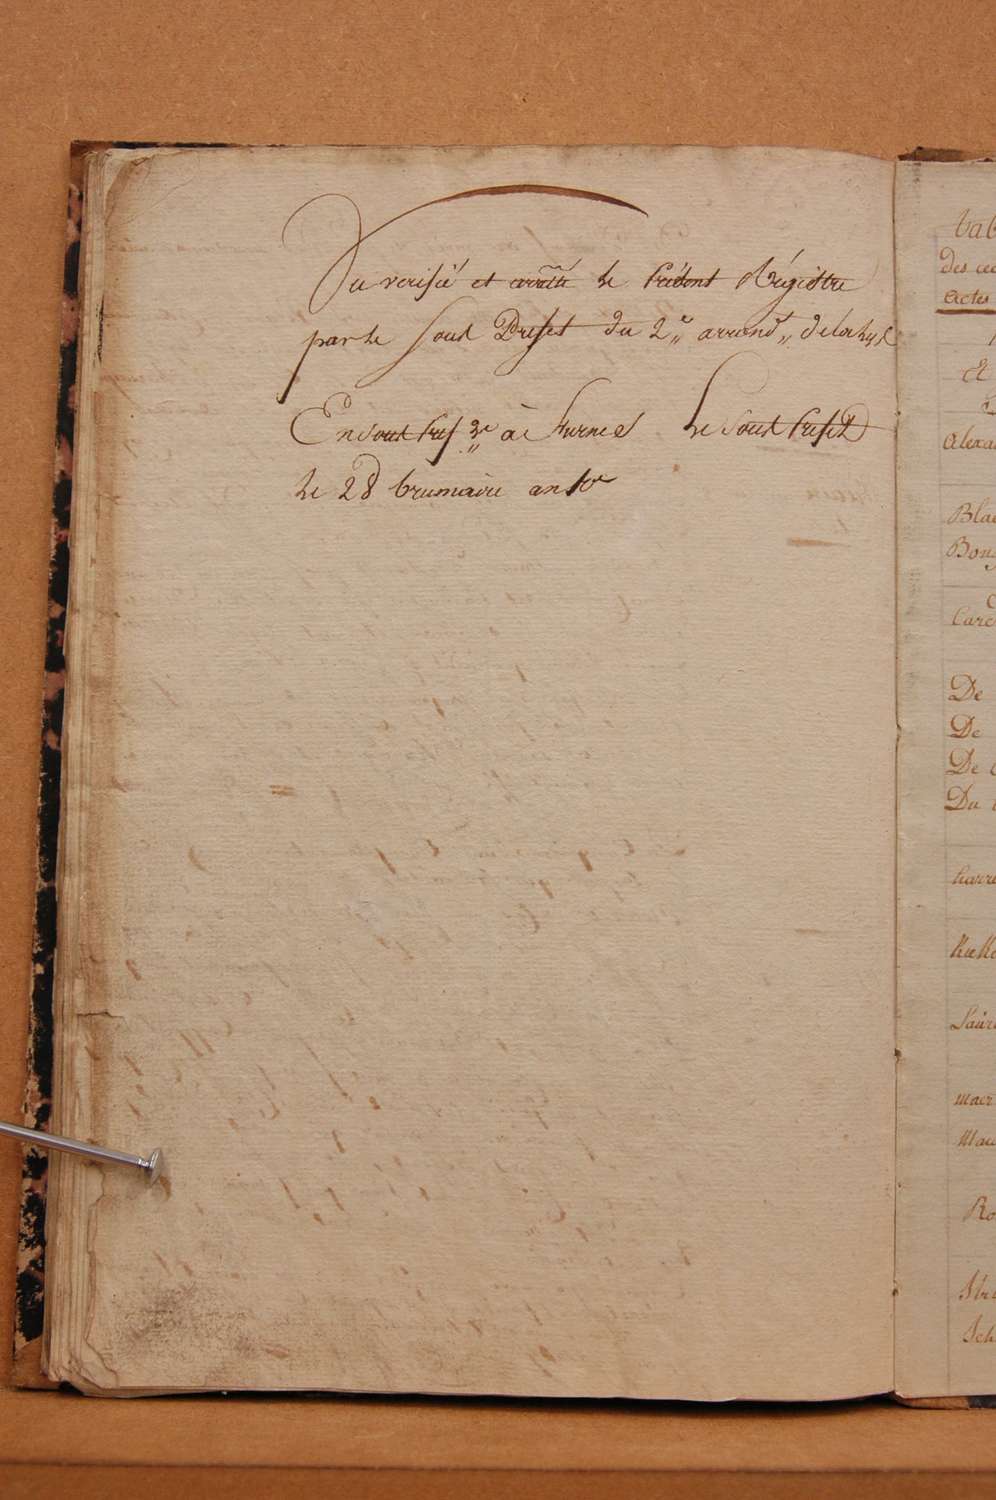 Vu verifié et arrêté le présent Régistre
par le Sous Prefet du 2e arrond.t de la Lys
En sous Pref re à Furnes le Sous Prefet
le 28 brumaire an 10e
tab
des
actes
et
alexa
Bla
Bou
Care
De
De
De
Du
harre
Maer
Ro
Sch